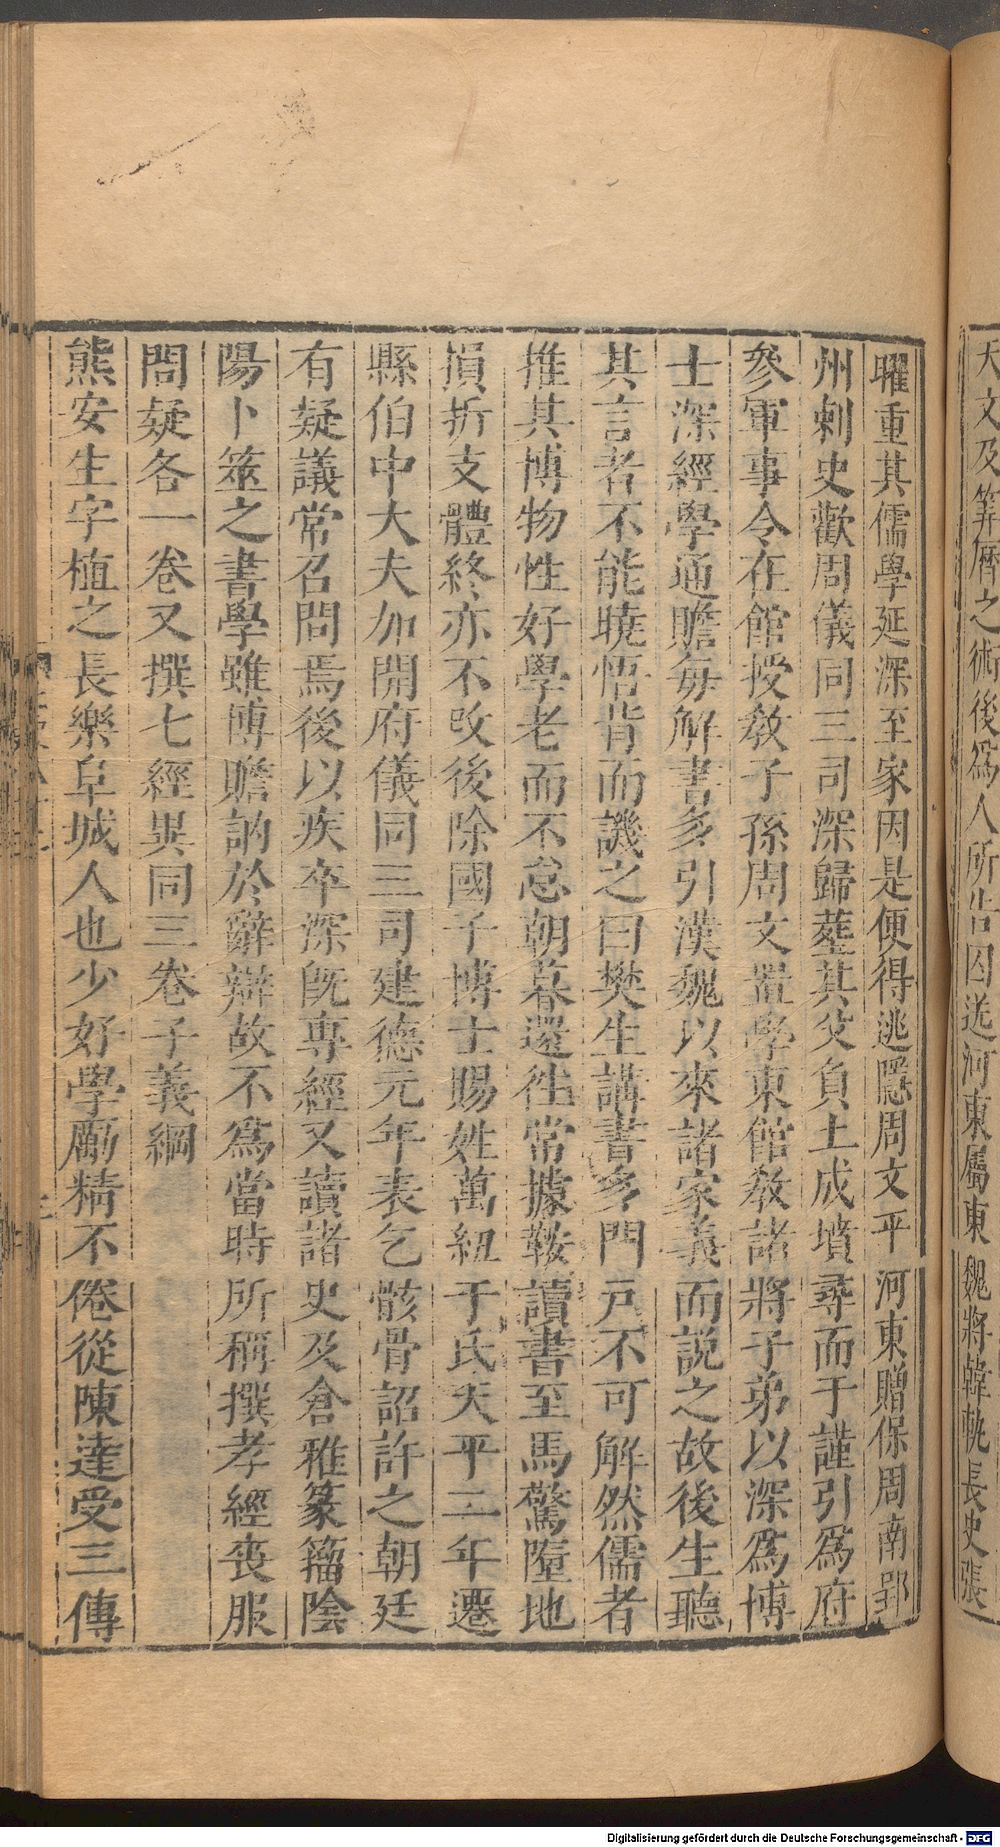 天文及筭曆之術後爲人所告囚送河東屬東魏將韓軌長史張
曜重其儒學延深至家因是便得逃隱周文平河東贈保周南郢
州刺史歡周儀同三司深歸葬其父負土成墳尋而于謹引爲府
參軍事令在館授敎子孫周文置學東館敎諸將子弟以深爲博
士深經學通贍每解書多引漢魏以來諸家義而説之故後生聽
其言者不能曉悟背而譏之曰樊生講書多門戸不可解然儒者
推其博物性好學老而不怠朝暮還徃常據鞍讀書至馬驚墮地
損折支體終亦不改後除國子博士賜姓萬紐于氏天平二年遷
縣伯中大夫加開府儀同三司建德元年表乞骸骨詔許之朝廷
有疑議常召問焉後以疾卒深旣專經又讀諸史及倉雅篆籒陰
陽卜筮之書學雖博贍訥於辭辯故不爲當時所稱撰孝經喪服
問疑各一卷又撰七經異同三卷子義綱
熊安生字植之長樂阜城人也少好學勵精不倦從陳達受三傳
Digitalisierung gefördert durch die Deutsche Forschungsgemeinschaft - DFG